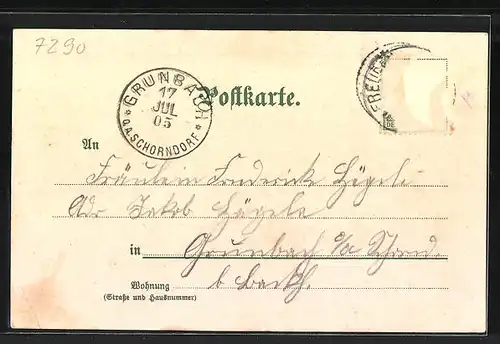 7290
GRUNBACH
17
JUL
05
* O.A. SCHORNDORF *
Postkarte.
FREUD
An
Fräulein Frederick Hägele
Adr Jakob Hägele
in Grunbach O/A Schornd.
b
Wohnung
(Straße und Hausnummer)